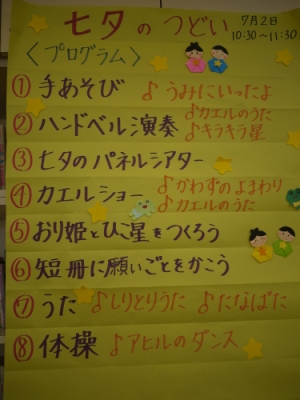 七夕のつどい 7月2日
10:30~11:30
〈プログラム〉
①手あそび ♪うみにいったよ
②ハンドベル演奏 ♪カエルのうた
♪キラキラ星
③七夕のパネルシアター
④カエルショー ♪かわずのよまわり
♪カエルのうた
⑤おり姫とひこ星をつくろう
⑥短冊に願いごとをかこう
⑦うた ♪しりとりうた ♪たなばた
⑧体操 ♪アヒルのダンス